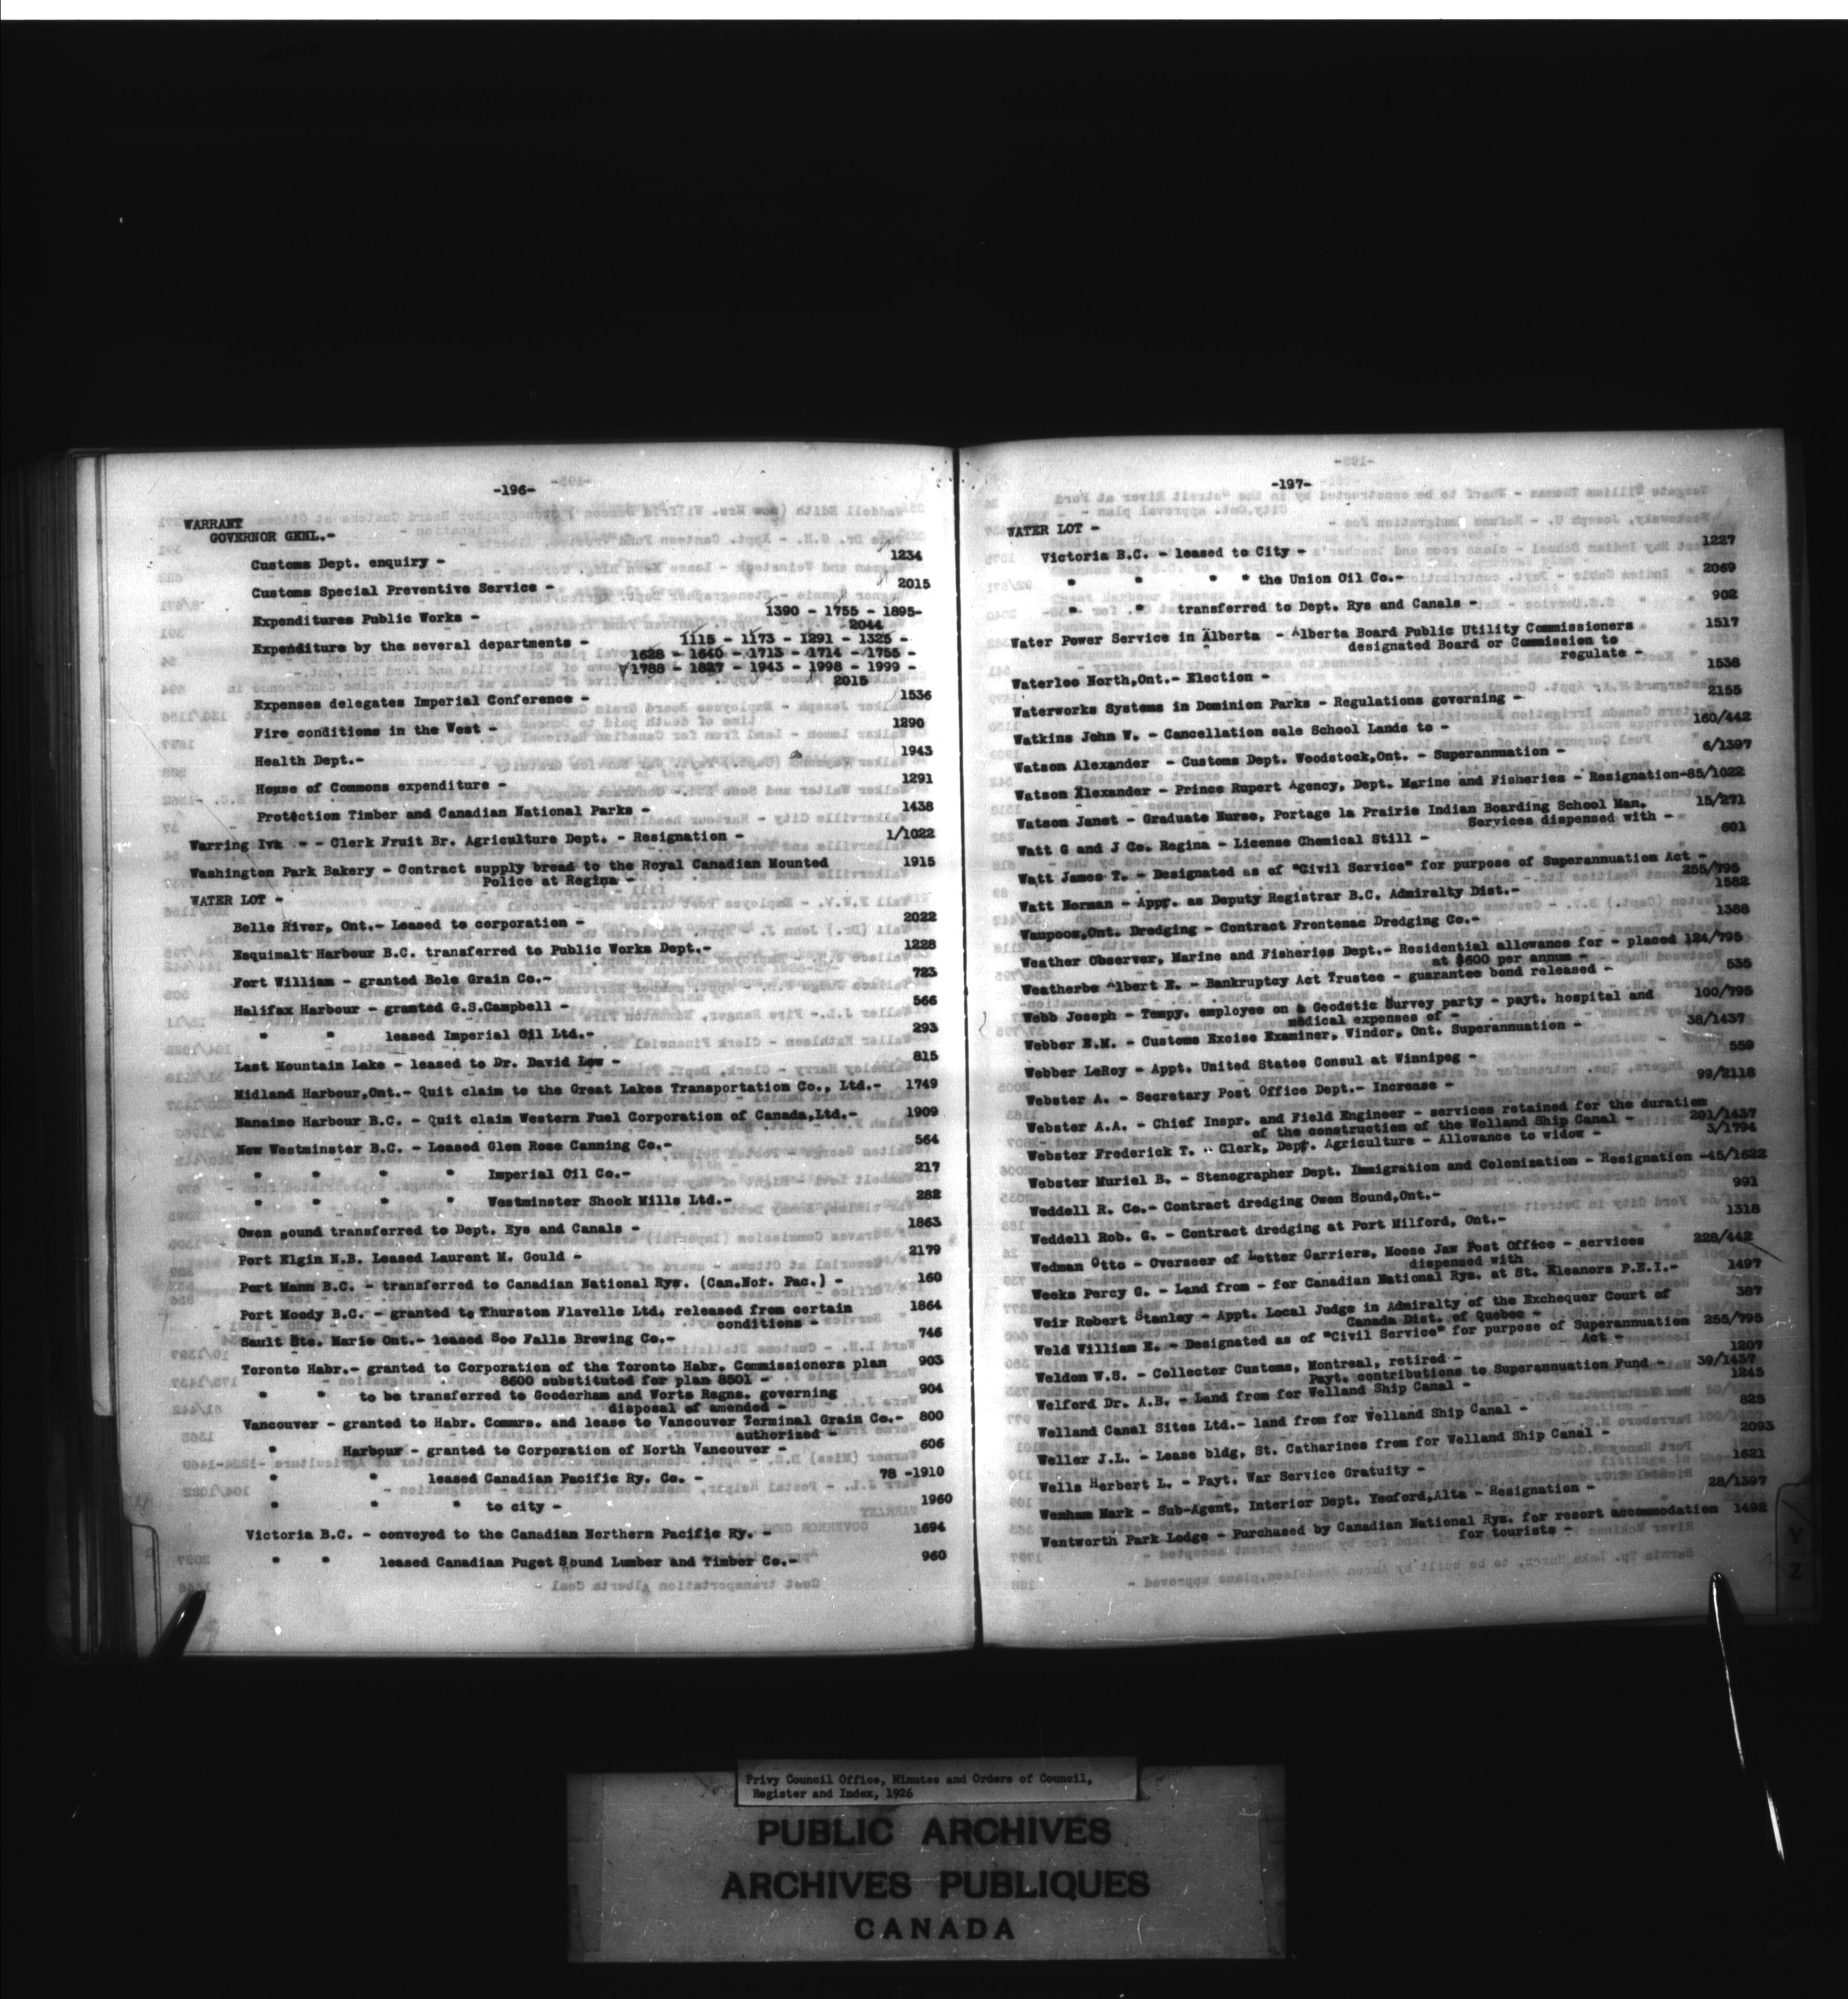 -196-
WARRANT
GOVERNOR GENL.-
Customs Dept. enquiry - 1234
Customs Special Preventive Service - 2015
Expenditures Public Works - 1390 - 1755 - 1895-
2044
Expenditure by the several departments - 1115 - 1173 - 1291 - 1325 -
1628 - 1640 - 1713 - 1714 - 1755 -
1788 - 1827 - 1943 - 1998 - 1999 -
2015
Expenses delegates Imperial Conference - 1536
Fire conditions in the West - 1290
Health Dept.- 1943
House of Commons expenditure - 1291
Protection Timber and Canadian National Parks - 1438
Warring Iva - - Clerk Fruit Br. Agriculture Dept. - Resignation - 1/1022
Washington Park Bakery - Contract supply bread to the Royal Canadian Mounted 1915
Police at Regina -
WATER LOT -
Belle River, Ont.- Leased to corporation - 2022
Esquimalt Harbour B.C. transferred to Public Works Dept.- 1228
Fort William - granted Bole Grain Co.- 723
Halifax Harbour - granted G.S.Campbell - 566
" " leased Imperial Oil Ltd.- 293
Last Mountain Lake - leased to Dr. David Low - 815
Midland Harbour,Ont.- Quit claim to the Great Lakes Transportation Co., Ltd.- 1749
Nanaimo Harbour B.C. - Quit claim Western Fuel Corporation of Canada,Ltd.- 1909
New Westminster B.C. - Leased Glen Rose Canning Co.- 564
" " " " Imperial Oil Co.- 217
" " " " Westminster Shook Mills Ltd.- 282
Owen sound transferred to Dept. Rys and Canals - 1863
Port Elgin N.B. Leased Laurent M. Gould - 2179
Port Mann B.C. - transferred to Canadian National Rys. (Can.Nor. Pac.) - 160
Port Moody B.C. - granted to Thurston Flavelle Ltd. released from certain 1864
conditions -
Sault Ste. Marie Ont.- leased Soo Falls Brewing Co.- 746
Toronto Habr.- granted to Corporation of the Toronto Habr. Commissioners plan 903
8600 substituted for plan 8501 -
" " to be transferred to Gooderham and Worts Regns. governing 904
disposal of amended -
Vancouver - granted to Habr. Commrs. and lease to Vancouver Terminal Grain Co.- 800
authorized -
" Harbour - granted to Corporation of North Vancouver - 606
" " leased Canadian Pacific Ry. Co. - 78 -1910
" " " to city - 1960
Victoria B.C. - conveyed to the Canadian Northern Pacific Ry. - 1694
" " leased Canadian Puget Sound Lumber and Timber Co.- 960
-197-
WATER LOT -
Victoria B.C. - leased to City - 1227
" " " " the Union Oil Co.- 2069
" " transferred to Dept. Rys and Canals - 902
Water Power Service in Alberta - Alberta Board Public Utility Commissioners 1517
designated Board or Commission to
regulate -
Waterloo North,Ont.- Election - 1538
Waterworks Systems in Dominion Parks - Regulations governing - 2155
Watkins John W. - Cancellation sale School Lands to - 160/442
Watson Alexander - Customs Dept. Woodstock,Ont. - Superannuation - 6/1397
Watson Alexander - Prince Rupert Agency, Dept. Marine and Fisheries - Resignation-85/1022
Watson Janet - Graduate Nurse, Portage la Prairie Indian Boarding School Man. 15/271
Services dispensed with -
Watt G and J Co. Regina - License Chemical Still - 601
Watt James T. - Designated as of "Civil Service" for purpose of Superannuation Act -
255/795
Watt Norman - Appt. as Deputy Registrar B.C. Admiralty Dist.- 1582
Waupoos,Ont. Dredging - Contract Frontenac Dredging Co.- 1388
Weather Observer, Marine and Fisheries Dept.- Residential allowance for - placed 124/795
at $600 per annum -
Weatherbe Albert E. - Bankruptcy Act Trustee - guarantee bond released - 535
Webb Joseph - Tempy. employee on a Geodetic Survey party - payt. hospital and 100/795
medical expenses of -
Webber E.M. - Customs Excise Examiner, Windor, Ont. Superannuation - 38/1437
Webber LeRoy - Appt. United States Consul at Winnipeg - 559
Webster A. - Secretary Post Office Dept.- Increase - 99/2118
Webster A.A. - Chief Inspr. and Field Engineer - services retained for the duration
of the construction of the Welland Ship Canal - 201/1437
Webster Frederick T. - Clerk, Dept. Agriculture - Allowance to widow - 3/1794
Webster Muriel B. - Stenographer Dept. Immigration and Colonization - Resignation -45/1622
Weddell R. Co.- Contract dredging Owen Sound,Ont.- 991
Weddell Rob. G. - Contract dredging at Port Milford, Ont.- 1318
Wedman Otto - Overseer of Letter Carriers, Moose Jaw Post Office - services 228/442
dispensed with -
Weeks Percy G. - Land from - for Canadian National Rys. at St. Eleanors P.E.I.- 1497
Weir Robert Stanley - Appt. Local Judge in Admiralty of the Exchequer Court of 387
Canada Dist. of Quebec -
Weld William E. - Designated as of "Civil Service" for purpose of Superannuation 255/795
Act -
Weldon W.S. - Collector Customs, Montreal, retired - 1207
Payt. contributions to Superannuation Fund - 39/1437
Welford Dr. A.B. - Land from for Welland Ship Canal - 1245
Welland Canal Sites Ltd.- land from for Welland Ship Canal - 825
Weller J.L. - Lease bldg, St. Catharines from for Welland Ship Canal - 2093
Wells Herbert L. - Payt. War Service Gratuity - 1621
Wenham Mark - Sub-Agent, Interior Dept. Yeoford,Alta - Resignation - 28/1397
Wentworth Park Lodge - Purchased by Canadian National Rys. for resort accommodation 1492
for tourists -
Y
Z
Privy Council Office, Minutes and Orders of Council,
Register and Index, 1926
PUBLIC ARCHIVES
ARCHIVES PUBLIQUES
CANADA